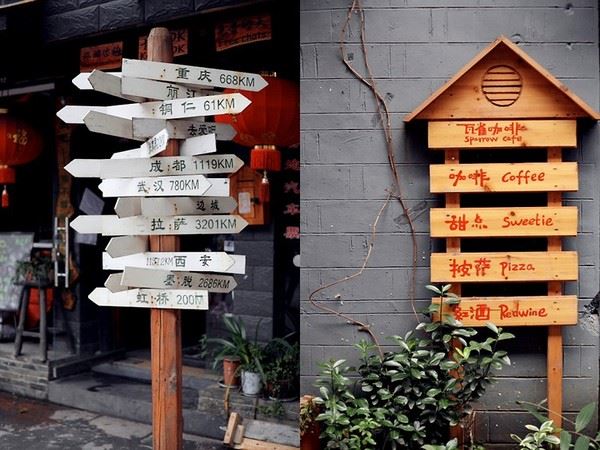 重庆 668KM
丽江
铜仁 61KM
成都 1119KM
武汉 780KM
边城
拉萨 3201KM
西安
墨脱 2686KM
虹桥 200M
瓦雀咖啡
Sparrow cafe
咖啡 Coffee
甜点 Sweetie
按萨 Pizza
红酒 Redwine